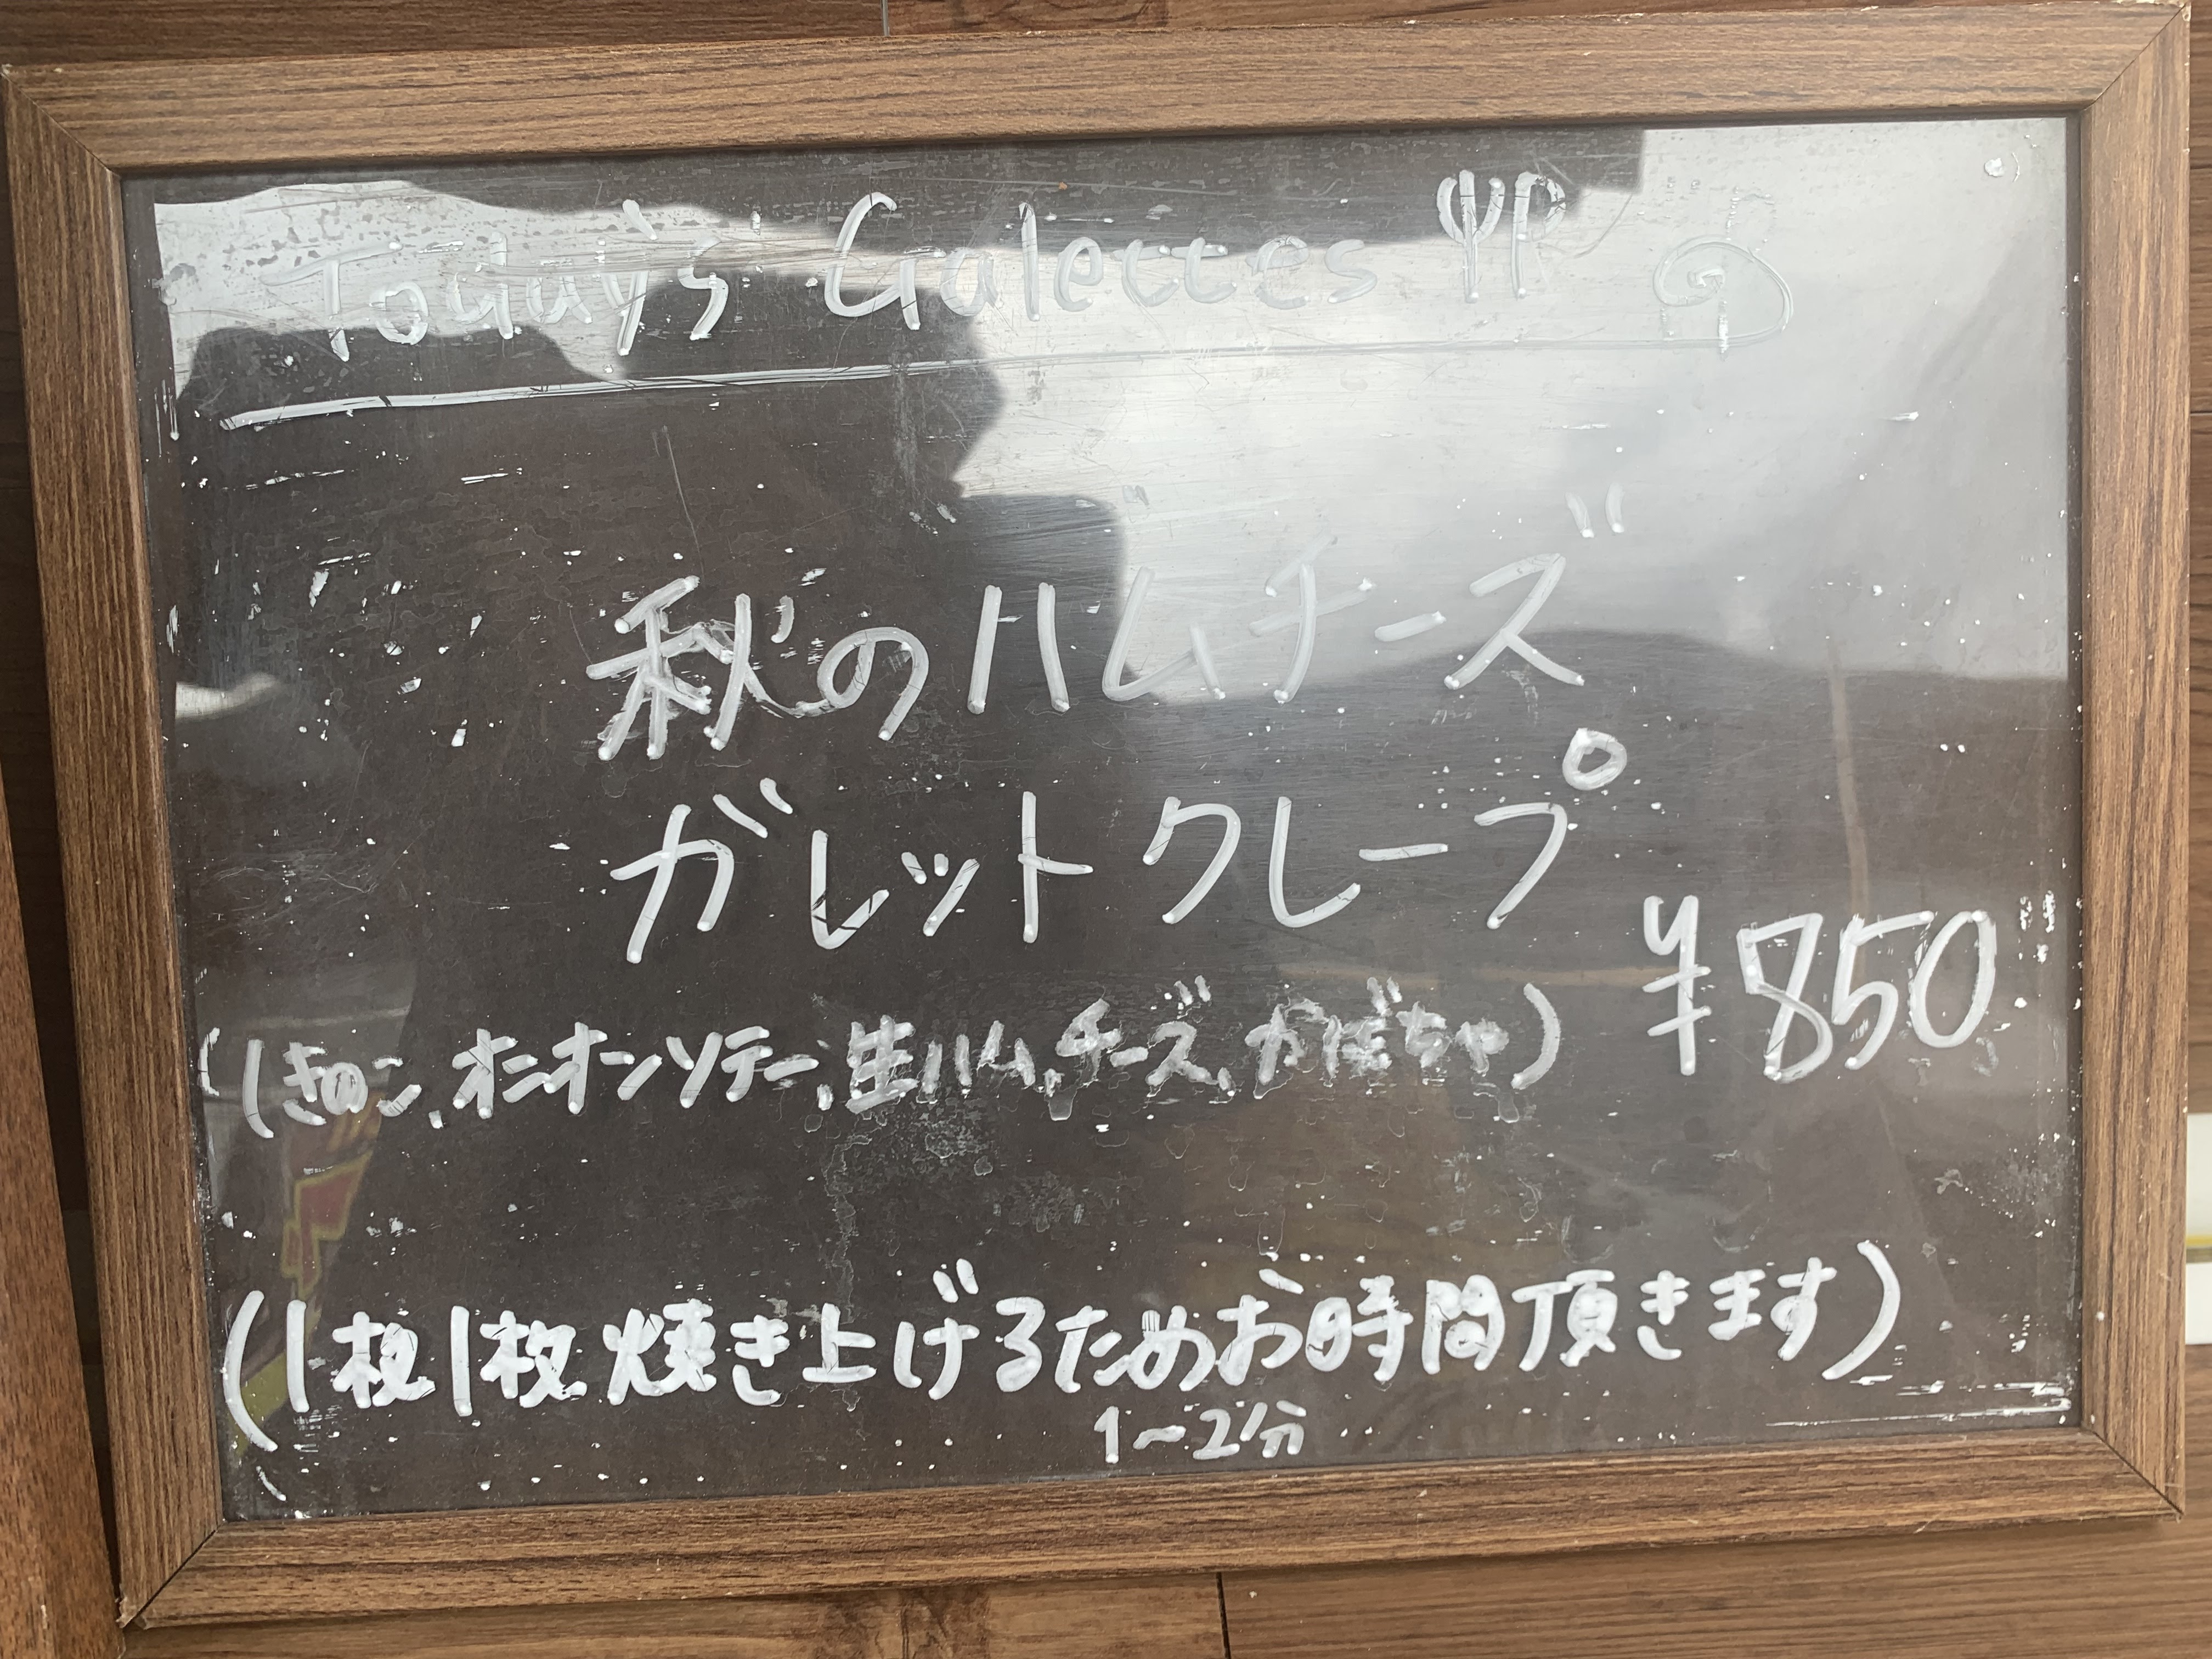 Today's Galettes
秋のハムチーズ
ガレットクレープ
¥850
(しきのこ、オニオンソテー、生ハム、チーズ、かぼちゃ)
(1枚1枚焼き上げるためお時間頂きます)
1～2分